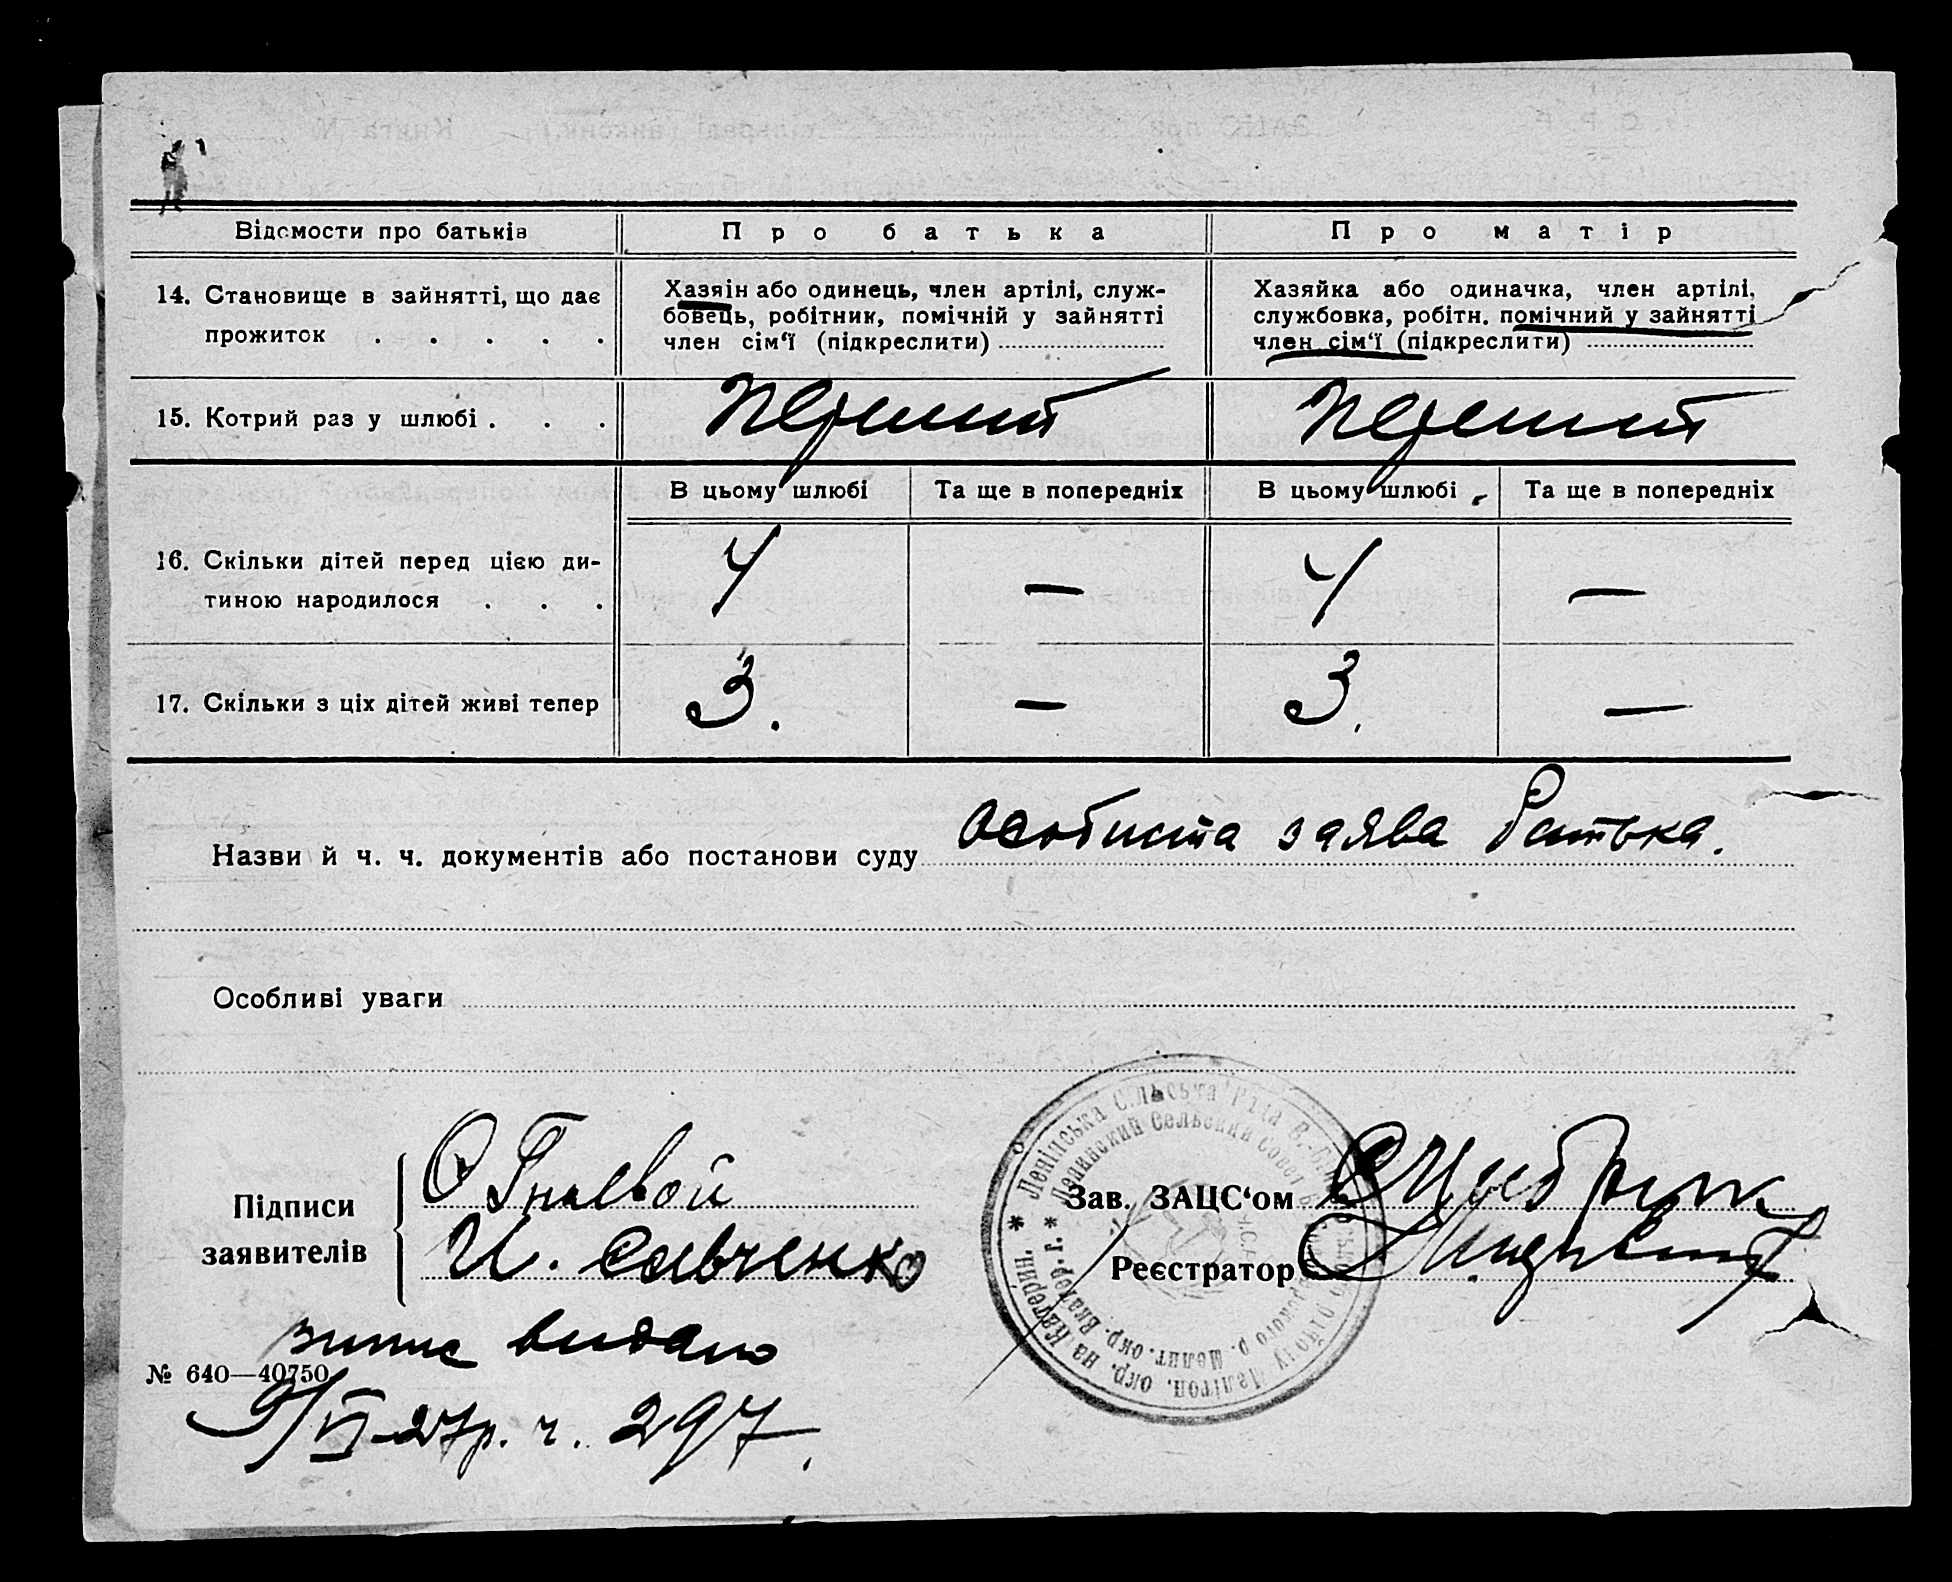 Відомости про батьків
Про батька
Про матір
14. Становище в зайнятті, що дає
прожиток . . . . .
Хазяін або одинець, член артілі, служ-
бовець, робітник, помічній у зайнятті
член сім'ї (підкреслити)
Хазяйка або одиначка, член артілі,
службовка, робітн. помічний у зайнятті
член сім'ї (підкреслити)
15. Котрий раз у шлюбі . . .
перший
перший
В цьому шлюбі
Та ще в попередніх
В цьому шлюбі
Та ще в попередніх
16. Скільки дітей перед цією ди-
тиною народилося . . .
4
—
4
—
17. Скільки з ціх дітей живі тепер
3.
—
3.
—
Назви й ч. ч. документів або постанови суду особиста заява батька.
Особливі уваги
Підписи
заявителів
О Гнževой
И. Савченко
Зав. ЗАЦС'ом
Реєстратор
Ленінська Сільська Рада
Ленинский Сельский Совет
Мелітоп. окр. на Катерин.
Мелит. окр. Екатер. г.
випис видано
№ 640—40750
9/VI-27р. ч. 297.